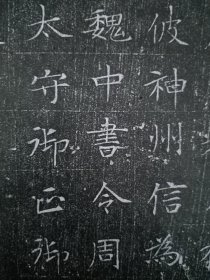 彼神州信為
魏中書令周
太守御正御